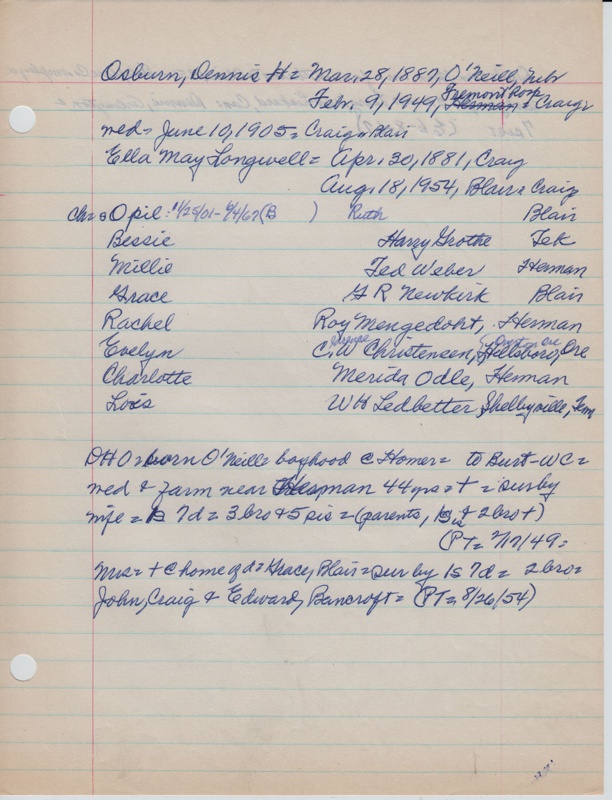 Osburn, Dennis H = Mar. 28, 1887, O'Neill, Neb
Fremont Hosp
Feb. 9, 1949, Herman = Craig
med = June 10, 1905 = Craig Blair
Ella May Longwell = Apr. 30, 1881, Craig
Aug. 18, 1954, Blair = Craig
Ch = Opil: 11/25/01 - 6/4/67 (B ) Ruth Blair
Bessie Harry Grothe Tek
Millie Ted Weber Herman
Grace G R Newkirk Blair
Rachel Roy Mengedoht, Herman
Evelyn C. W Christensen, Hillsboro, Ore
Charlotte Merida Odle, Herman
Lois W H Ledbetter, Shelbyville, Tenn
DHO = born O'Neill = boyhood c Homer = to Burt-WC =
med & farm near Herman 44 yrs = + = sur by
wife = 1s 7d = 3 bro & 5 sis = (parents, 1 sis & 2 bro +)
(PT = 2/17/49 =
Mrs = + c home of d = Grace, Blair = sur by 1s 7d = 2 bro =
John, Craig & Edward, Bancroft = (PT = 8/26/54)